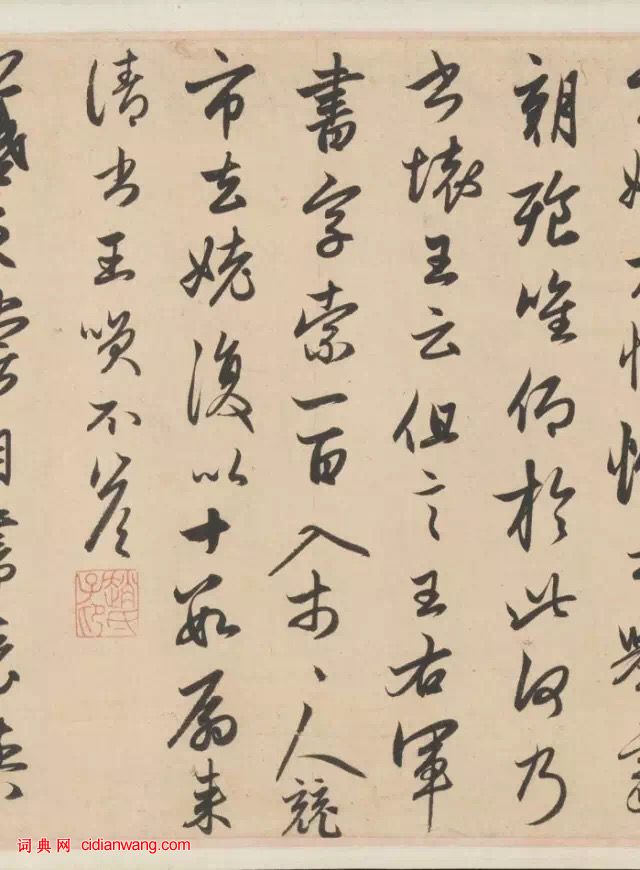 朝飧唯仰於此何乃
書壞王云但言王右軍
書字索一百入市〻人競
市去姥復以十數扇来
請書王咲不答
趙氏子昂
词典网 cidianwang.com